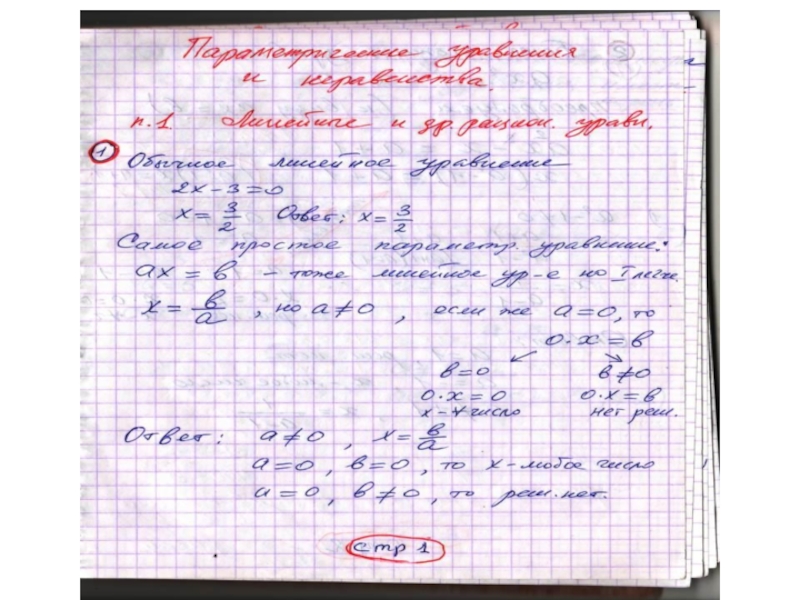 Параметрические уравнения
и неравенства.
п.1 Линейные и др. рацион. уравн.
1 Обычное линейное уравнение
2x - 3 = 0
x = 3/2 Ответ: x = 3/2
Самое простое параметр. уравнение:
ax = b - тоже линейное ур-е но I
x = b/a , но a ≠ 0 , если же a = 0, то
0·x = b
b = 0 b ≠ 0
0·x = 0 0·x = b
x - ∀ число нет реш.
Ответ: a ≠ 0 , x = b/a
a = 0 , b = 0 , то x - любое число
a = 0 , b ≠ 0 , то реш. нет.
стр 1